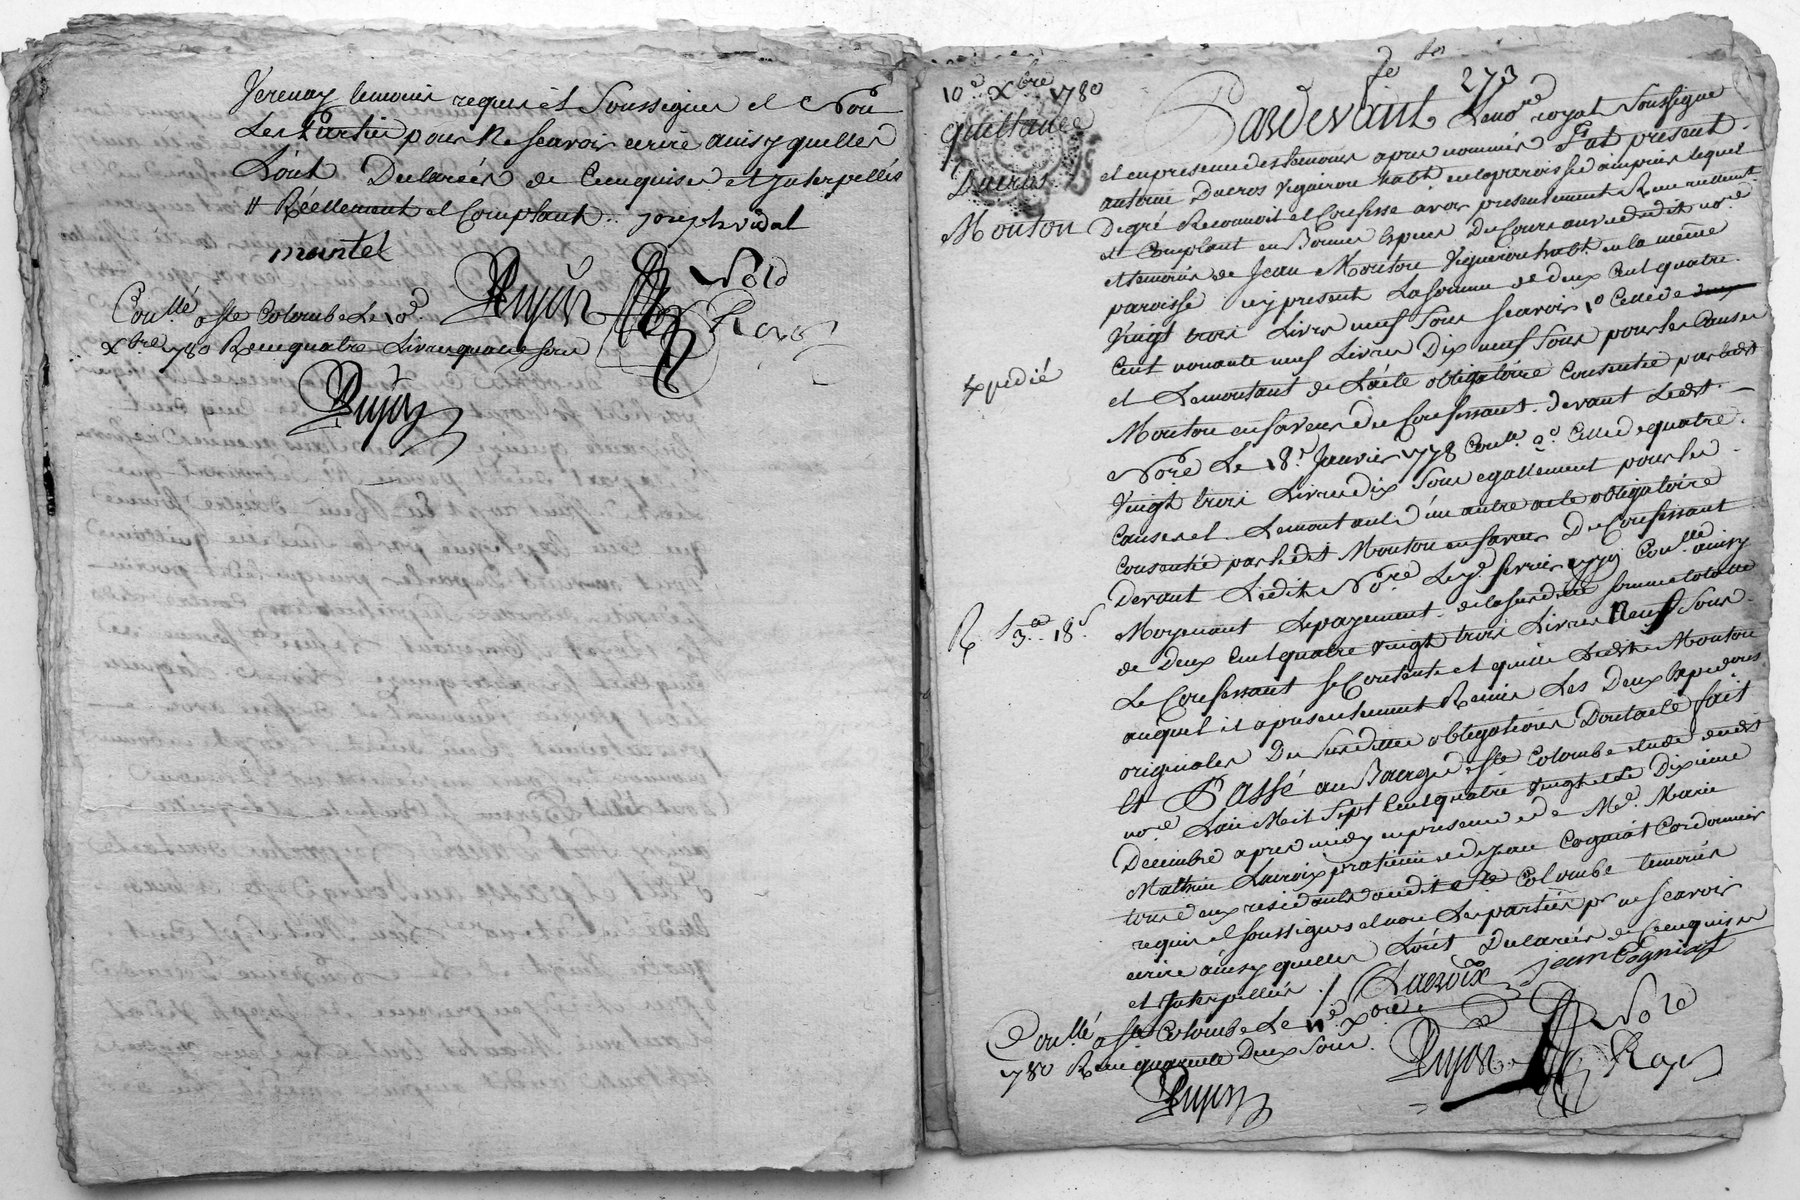 Verenay temoins requis et Soussignes et Non
Les Parties pour Ne scavoir ecrire ainsy quelles
L'ont Declarées de Ce enquises et Interpellés
# Réellement et Comptant :. joseph vidal
mantel
Pujon Nore
Con.llé a Ste Colombe Le 10e. Royal
xbre 1780 Recu quatre Livres quatre sous
Pujon
273
10e xbre 1780
quittance
Ducros
a
Mouton
Expedié
R 3.# 18s
Pardevant Le nore royal soussigné
et en presence des temoins apres nommés Fut present
antoine Ducros Vigniron habt en la paroisse d'ampuis lequel
De gré Reconnoit et Confesse avoir presentement Reellement
et Comptant en Bonnes Especes Du Cours au vu dudit nore
et temoins de Jean Mouton Vigneron habt. en la même
paroisse icy present La somme de deux Cent quatre
Vingt trois Livres neuf sous scavoir 1o Celle de
Cent nonante neuf Livres Dix neuf sous pour les Causes
et Le montant de L'acte obligatoire Consentie par ledt
Mouton en faveur du Confessant devant Ledt
Nore Le 18e Janvier 1778 Conllé 2o Celle de quatre
Vingt trois Livres dix sous egallement pour les
Causes et Le montant d'un autre acte obligatoire
Consentie par ledit Mouton en faveur Du Confessant
Devant Ledit Nore Le 7e fevrier 1779 Conllé ainsy
Moyenant Le payement de la susditte somme totalle
de Deux Cent quatre Vingt trois Livres Neuf Sous
Le Confessant se Contente et quitte Ledt Mouton
auquel il a presentement Remis Les Deux Expeditions
originales Des susdittes obligations Dont acte fait
Et Passé au Bourg de Ste Colombe etude dudt
nore L'an Mil Sept Cent quatre Vingt et Le Dixieme
Decembre apres midy en presence de Me. Marie
Mathieu Lacroix praticien et de Jean Cogniat Cordonnier
tous deux residants audit Ste Colombe temoins
requis et soussignes et non Les parties pr ne scavoir
ecrire ainsy quelles L'ont Declarées de Ce enquises
et Interpellées ./. Lacroix jean Cogniat
Conllé a Ste Colombe Le 11e xbre Pujon Nore
1780 Recu quarante Deux Sous. Royal
Pujon